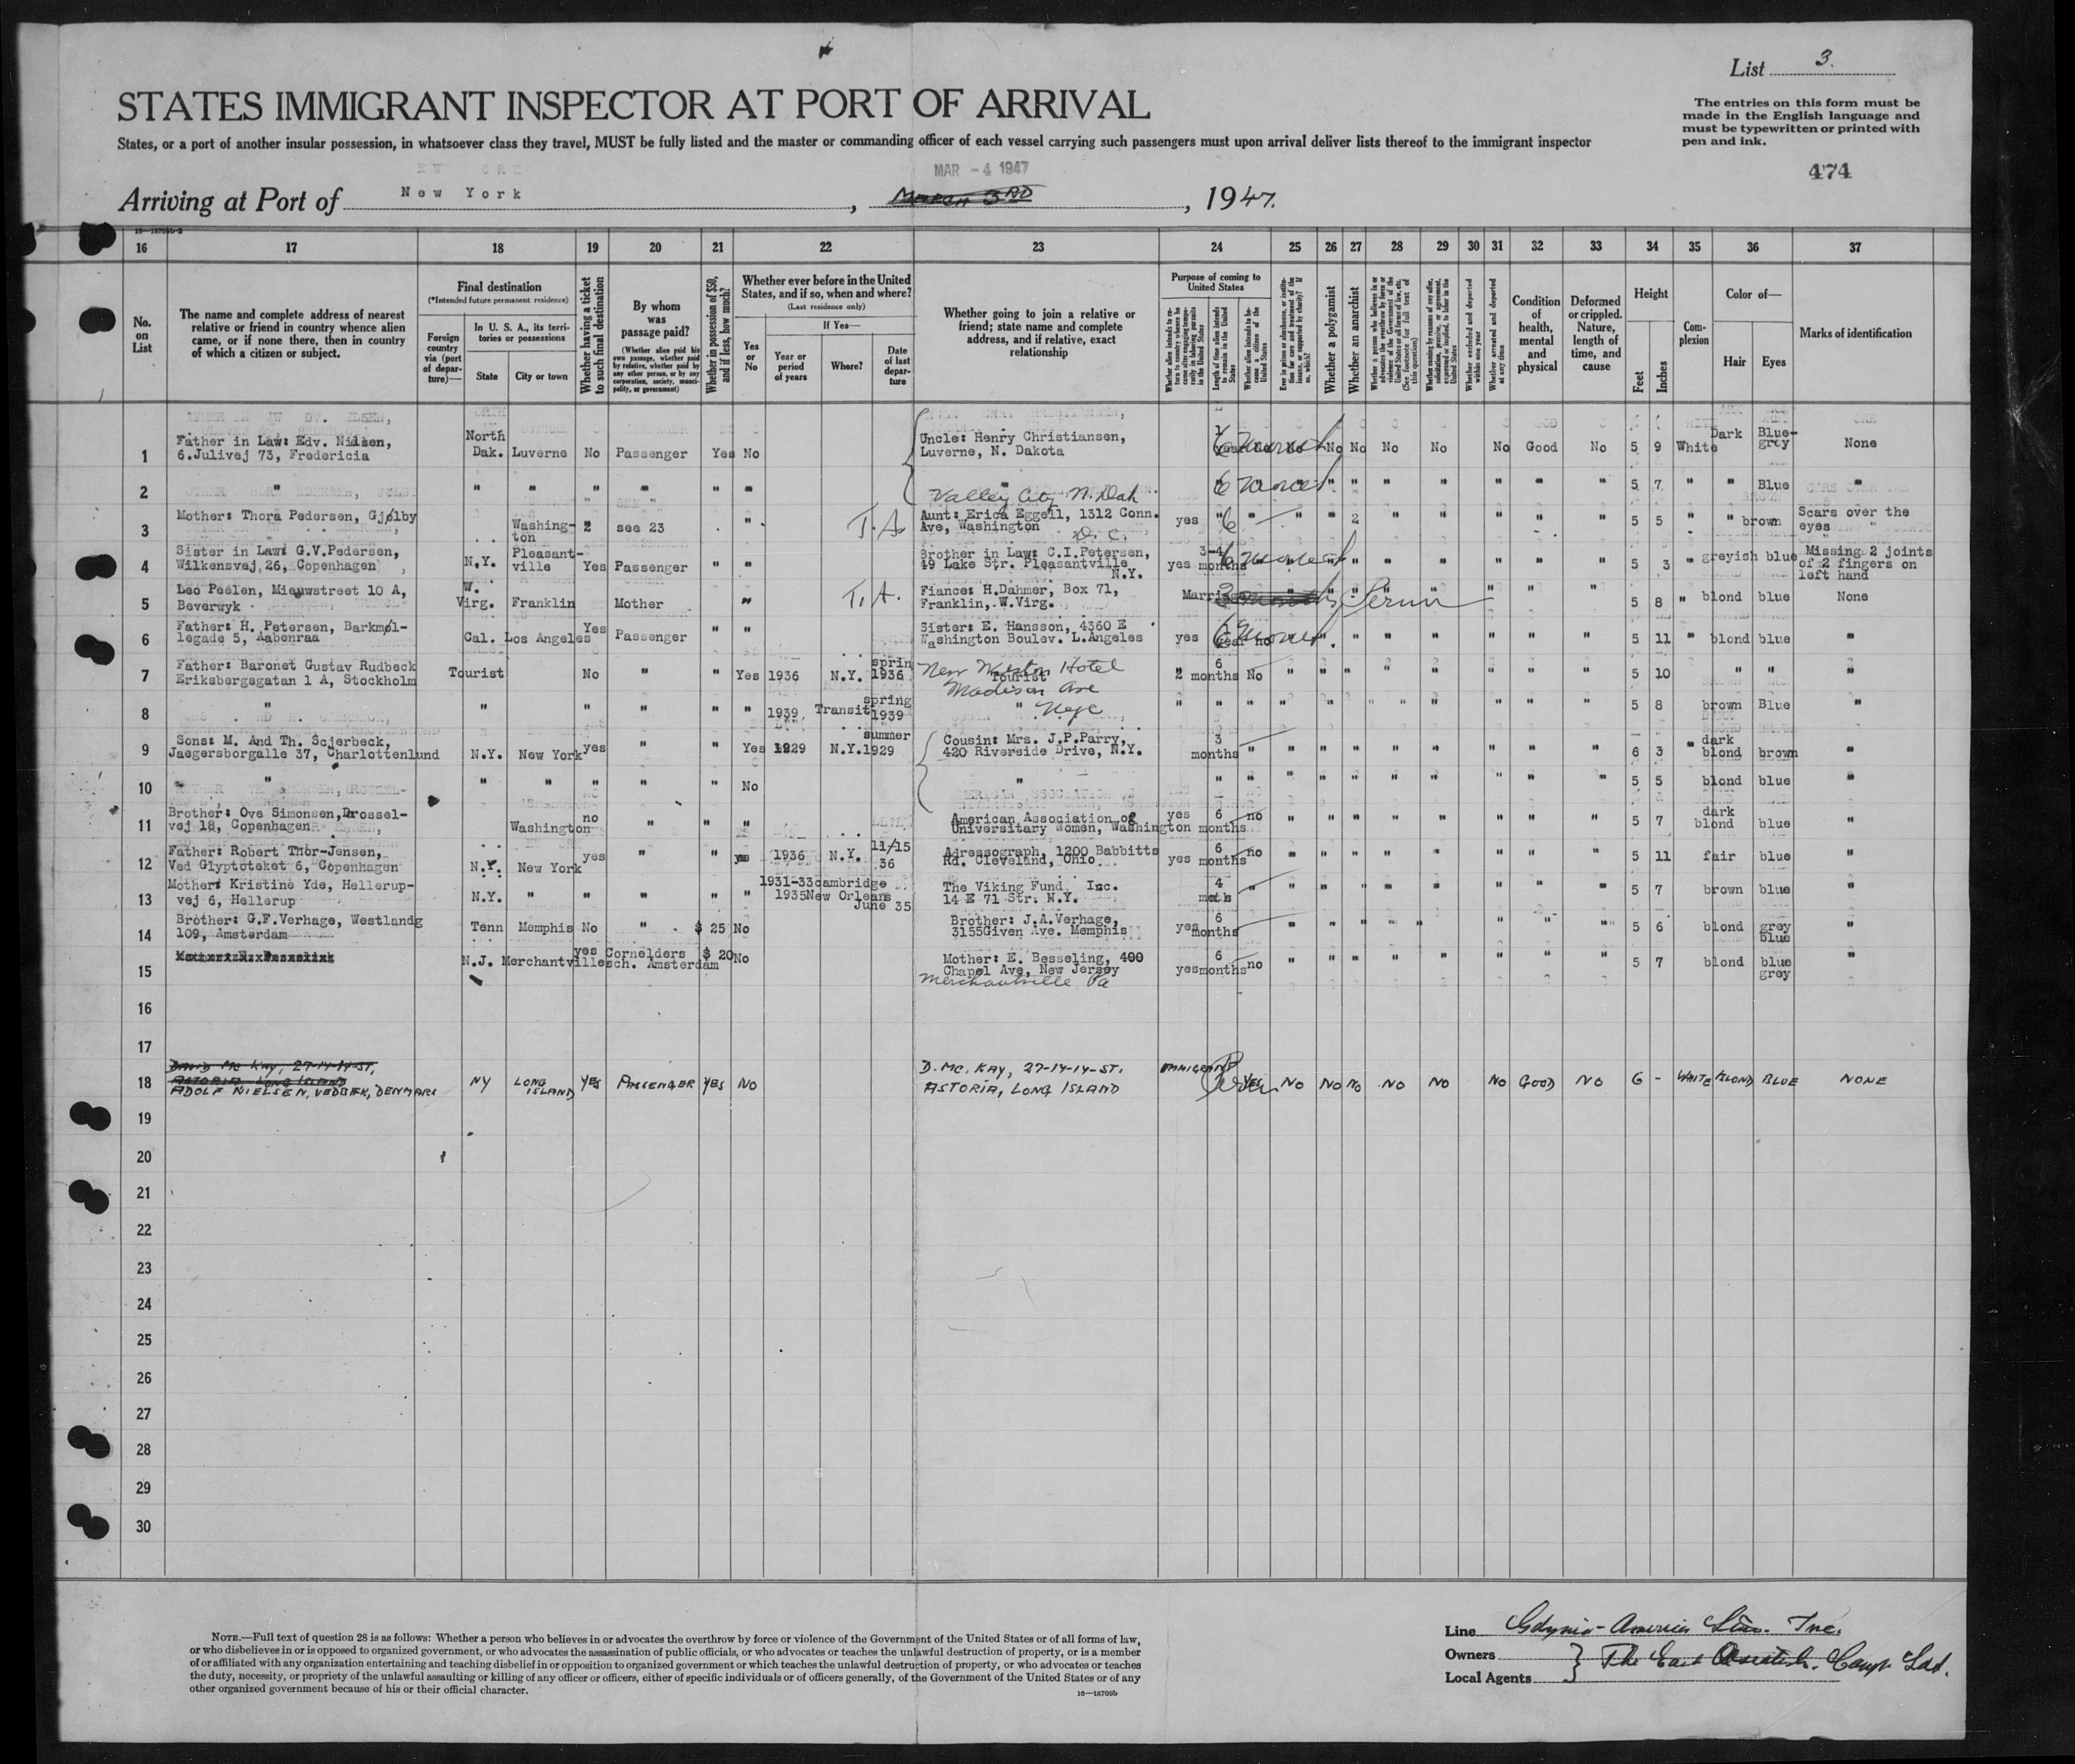 List 3.
STATES IMMIGRANT INSPECTOR AT PORT OF ARRIVAL
The entries on this form must be
made in the English language and
must be typewritten or printed with
pen and ink.
States, or a port of another insular possession, in whatsoever class they travel, MUST be fully listed and the master or commanding officer of each vessel carrying such passengers must upon arrival deliver lists thereof to the immigrant inspector
474
MAR - 4 1947
Arriving at Port of New York, March 3RD, 1947.
16—18709b-2
16 17 18 19 20 21 22 23 24 25 26 27 28 29 30 31 32 33 34 35 36 37
No. on List
The name and complete address of nearest
relative or friend in country whence alien
came, or if none there, then in country
of which a citizen or subject.
Final destination
(*Intended future permanent residence)
Foreign country via (port of departure)—
In U. S. A., its territories or possessions
State
City or town
Whether having a ticket to such final destination
By whom was passage paid?
(Whether alien paid his own passage, whether paid by relative, whether paid by any other person, or by any corporation, society, municipality, or government)
Whether in possession of $50, and if less, how much?
Whether ever before in the United States, and if so, when and where?
(Last residence only)
Yes or No
If Yes—
Year or period of years
Where?
Date of last departure
Whether going to join a relative or
friend; state name and complete
address, and if relative, exact
relationship
Purpose of coming to United States
Length of time alien intends to remain in the United States
Whether alien intends to become a citizen of the United States
Whether a polygamist
Whether an anarchist
Whether excluded and deported within one year
Whether arrested and deported at any time
Condition of health, mental and physical
Deformed or crippled. Nature, length of time, and cause
Height
Feet
Inches
Complexion
Color of—
Hair
Eyes
Marks of identification
1 Father in Law: Edv. Nilsen, 6.Julivej 73, Fredericia North Dak. Luverne No Passenger Yes No Uncle: Henry Christiansen, Luverne, N. Dakota No No No No No Good No 5 9 White Dark Blue-grey None
2 " " " " " " " " Valley City N. Dak. " " " 5 7 " " Blue "
3 Mother: Thora Pedersen, Gjølby Washington 2 see 23 " T.A. Aunt: Erica Eggell, 1312 Conn. Ave, Washington D.C. yes " 6 " " 2 " " " " " 5 5 " " brown Scars over the eyes
4 Sister in Law: G.V.Pedersen, Wilkensvej 26, Copenhagen N.Y. Pleasantville Yes Passenger " " Brother in Law: C.I.Petersen, 49 Lake Str. Pleasantville N.Y. yes 3-4 months " " " " " " " " 5 3 " greyish blue Missing 2 joints of 2 fingers on left hand
5 Leo Peelen, Mieuwstreet 10 A, Beverwyk W. Virg. Franklin Mother " T.A. Fiance: H.Dahmer, Box 71, Franklin, W.Virg. Marriage " " " " " 5 8 " blond blue None
6 Father: H. Petersen, Barkmøllegade 5, Aabenraa Cal. Los Angeles Yes Passenger " " Sister: E. Hansson, 4360 E Washington Boulev. L.Angeles yes year no " " " " " " " 5 11 " blond blue "
7 Father: Baronet Gustav Rudbeck Eriksbergsgatan 1 A, Stockholm Tourist No " " Yes 1936 N.Y. spring 1936 Tourist New Weston Hotel Madison Ave " 6 2 months No " " " " " " " " 5 10 " " "
8 " " " " " " 1939 Transit spring 1939 " N.Y.C " " " " " " " " " " " 5 8 brown Blue "
9 Sons: M. And Th. Scjerbeck, Jaegersborgalle 37, Charlottenlund N.Y. New York yes " " Yes 1929 N.Y. summer 1929 Cousin: Mrs. J.P.Parry, 420 Riverside Drive, N.Y. 3 months " " " " " " " " " 6 3 " dark blond brown "
10 " " " " " " No " " " " " " " " " " " 5 5 blond blue "
11 Brother: Ove Simonsen, Drosselvej 18, Copenhagen Washington no " " " American Association of Universitary Women, Washington yes 6 months no " " " " " " " " 5 7 dark blond blue "
12 Father: Robert Thor-Jensen, Ved Glyptoteket 6, Copenhagen N.Y. New York yes " " yes 1936 N.Y. 11/15 36 Adressograph, 1200 Babbitts Rd. Cleveland, Ohio yes 6 months no " " " " " " " " 5 11 fair blue "
13 Mother: Kristine Yde, Hellerupvej 6, Hellerup N.Y. " " " " " 1931-33 cambridge 1935 New Orleans June 35 The Viking Fund Inc. 14 E 71 Str. N.Y. 4 " " " " " " " " " 5 7 brown blue "
14 Brother: G.F.Verhage, Westlandg 109, Amsterdam Tenn Memphis No " $ 25 No Brother: J.A.Verhage, 3155Given Ave. Memphis yes 6 months " " " " " " " " 5 6 blond grey blue "
15 N.J. Merchantville yes Cornelders sch. Amsterdam $ 20 No Mother: E. Besseling, 400 Chapel Ave, New Jersey Merchantville Pa yes 6 months no " " " " " " " " 5 7 blond blue grey "
16
17
18 David Mc Kay, 27-14-14-ST, ASTORIA LONG ISLAND ADOLF NIELSEN, VEDBÆK, DENMARK NY LONG ISLAND YES PASSENGER YES NO D. MC. KAY, 27-14-14-ST. ASTORIA, LONG ISLAND IMMIGRANT YES NO NO NO NO NO NO GOOD NO 6 - WHITE BLOND BLUE NONE
19
20
21
22
23
24
25
26
27
28
29
30
NOTE.—Full text of question 28 is as follows: Whether a person who believes in or advocates the overthrow by force or violence of the Government of the United States or of all forms of law,
or who disbelieves in or is opposed to organized government, or who advocates the assassination of public officials, or who advocates or teaches the unlawful destruction of property, or is a member
of or affiliated with any organization entertaining and teaching disbelief in or opposition to organized government or which teaches the unlawful destruction of property, or who advocates or teaches
the duty, necessity, or propriety of the unlawful assaulting or killing of any officer or officers, either of specific individuals or of officers generally, of the Government of the United States or of any
other organized government because of his or their official character.
16—18709b
Line Gdynia-America Line. Inc.
Owners
Local Agents } The East Asiatic Comp Ltd.